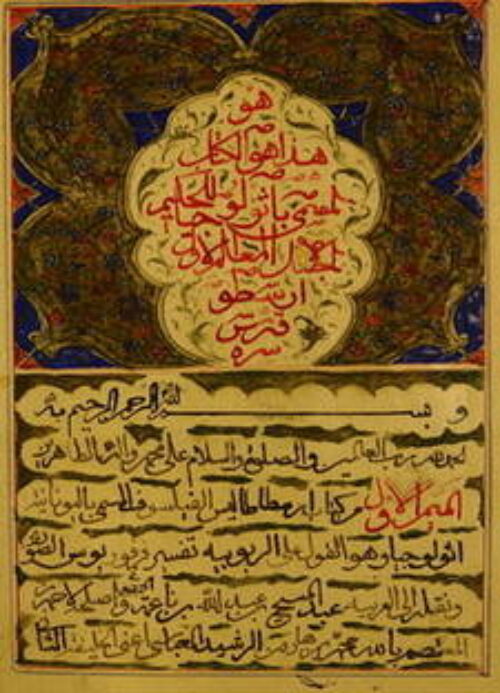 هو
هذا هو الكتاب
المسمى باثولوجيا للحكيم
الاجل المعلم الاول
ارسطو
قدس
سره
و بسم الله الرحمن الرحيم
الحمد لله رب العالمين والصلوة والسلام على محمد واله الطاهرين
الميمر الاول من كتاب ارسطاطاليس الفيلسوف المسمى باليونانية
اثولوجيا وهو القول على الربوبيه تفسير فرفوريوس الصورى
ونقله الى العربيه عبد المسيح بن عبد الله بن ناعمة الحمصى واصلحه لاحمد
المعتصم بالله